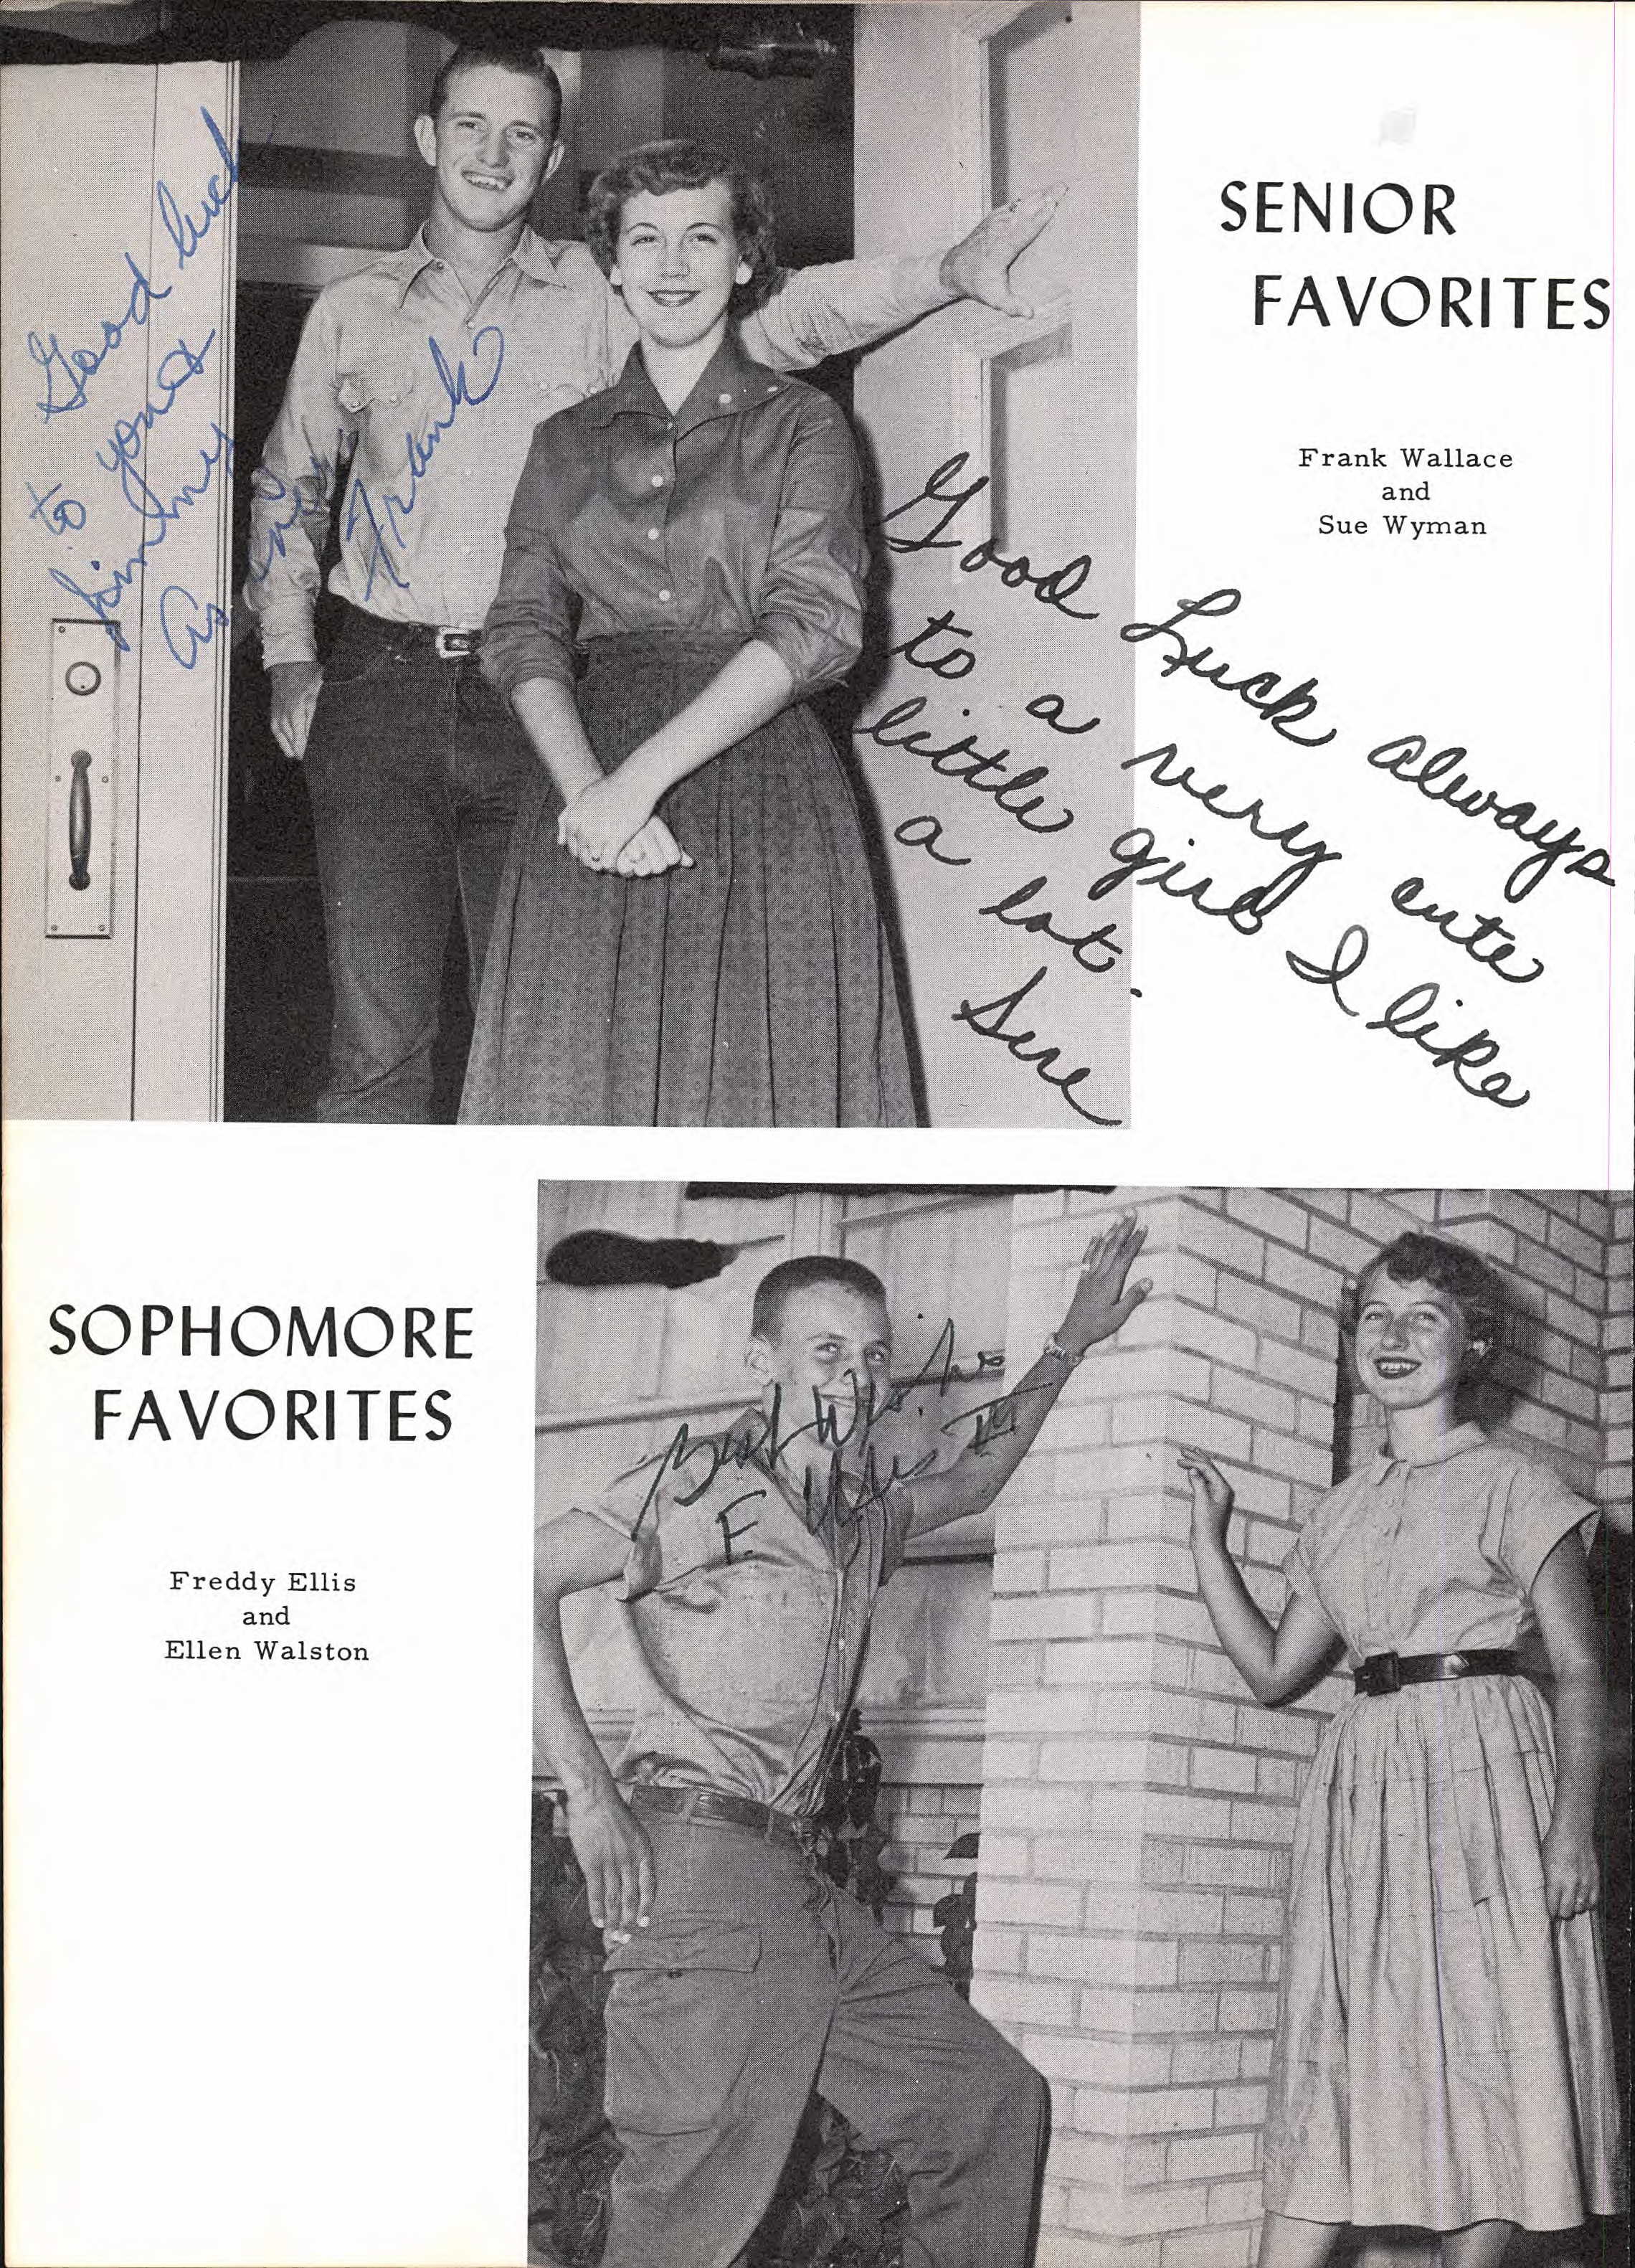 SENIOR
FAVORITES
Frank Wallace
and
Sue Wyman
Good luck
to you &
Jimmy
as
Frank
Good Luck always
to a very cute
little girl I like
a lot.
Sue
SOPHOMORE
FAVORITES
Freddy Ellis
and
Ellen Walston
Best Wishes
F. Ellis III